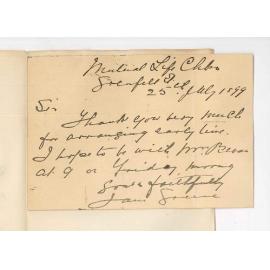 Mutual Life Chbrs
Grenfell St
25 July 1899
Sir
Thank you very much
for arranging early time.
I hope to be with Mr
at 9 on Friday morning
Yours faithfully